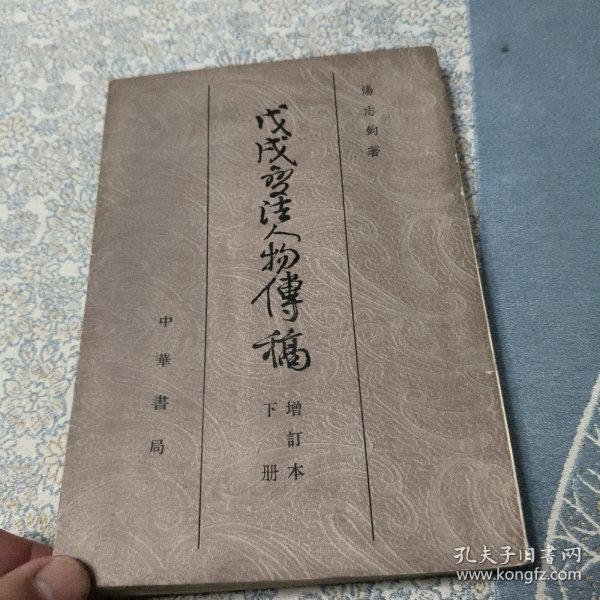 湯志鈞著
戊戌変法人物傳稿
增訂本
下册
中華書局
孔夫子旧書网
www.kongfz.com